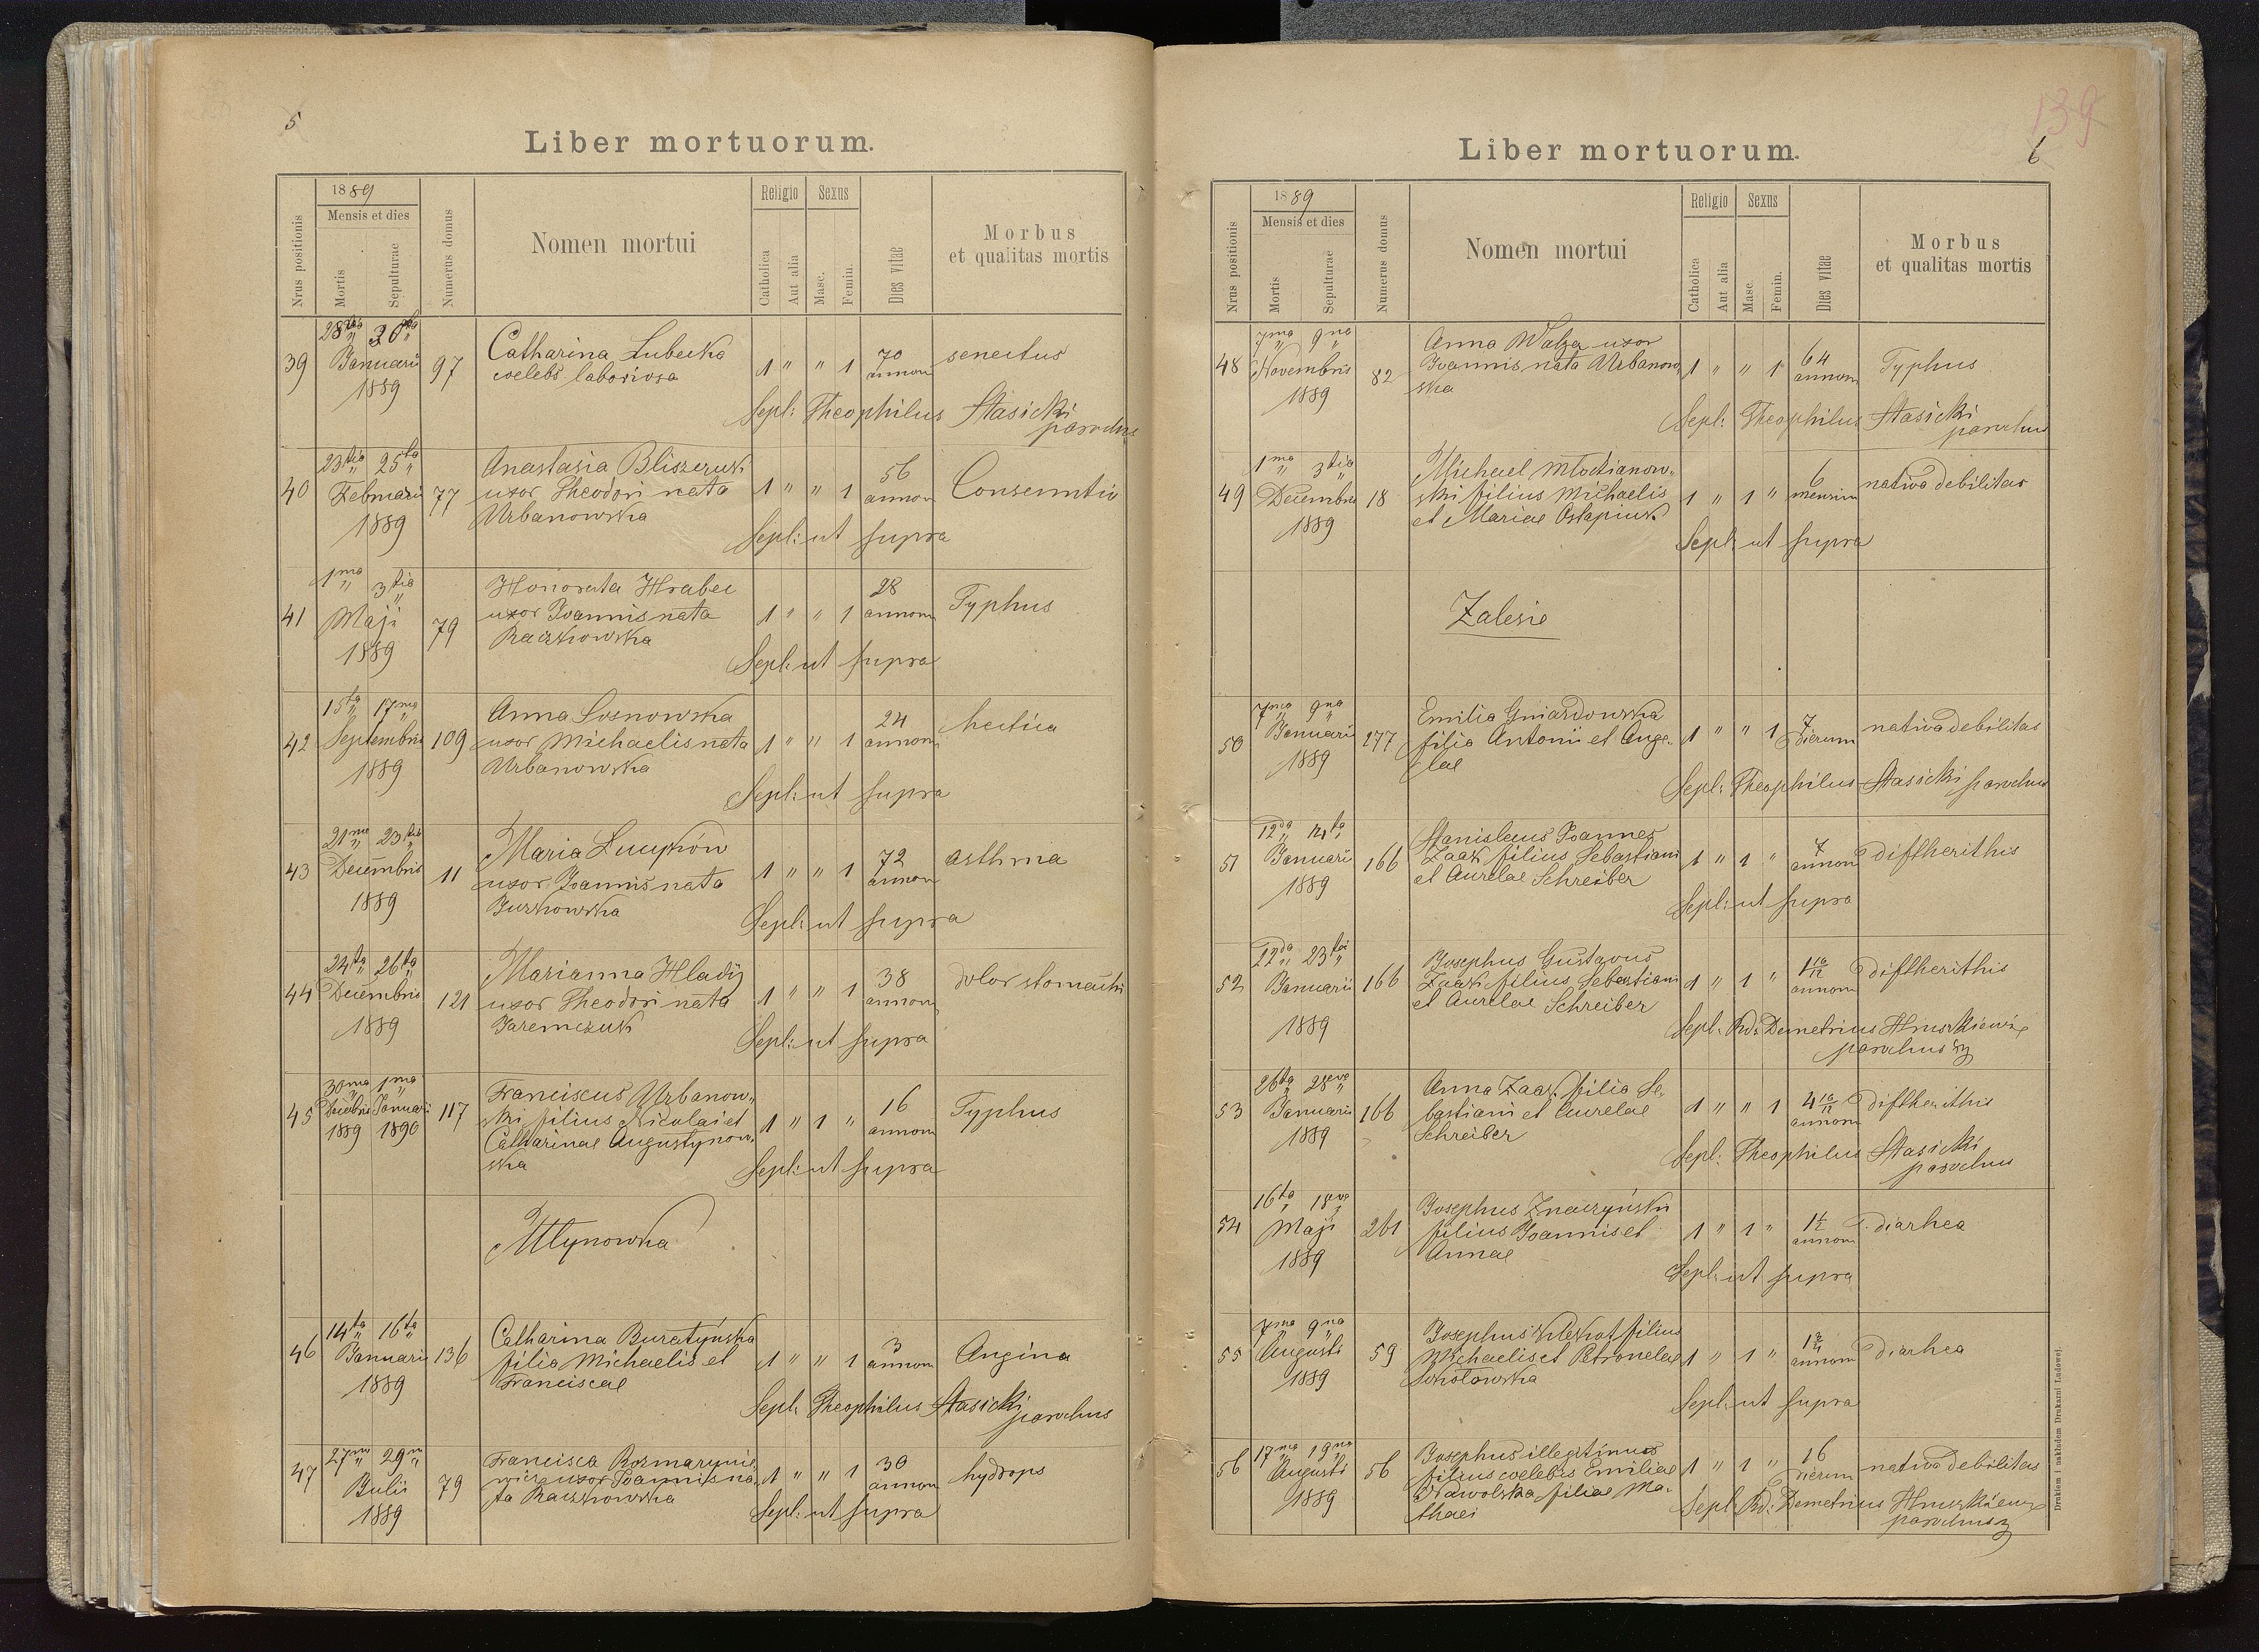 5
Liber mortuorum.
Nrus positionis
1889
Mensis et dies
Mortis
Sepulturae
Numerus domus
Nomen mortui
Religio
Catholica
Aut alia
Sexus
Masc.
Femin.
Dies vitae
Morbus
et qualitas mortis
39
28va 30ma
" "
Januarii
1889
97
Catharina Lubecka
coelebs laboriosa
1 " " 1
70
annorum
senectus
Sepl: Theophilus Stasicki
parochus
40
23tia 25ta
" "
Februarii
1889
77
Anastasia Bliszczuk
uxor Theodori nata
Urbanowska
1 " " 1
56
annorum
Consumtio
Sepl: ut supra
41
1ma 3tia
" "
Maji
1889
79
Honorata Hrabec
uxor Joannis nata
Raczkowska
1 " " 1
28
annorum
Typhus
Sepl: ut supra
42
15ta 17ma
" "
Septembris
1889
109
Anna Sosnowska
uxor Michaelis nata
Urbanowska
1 " " 1
24
annorum
hectica
Sepl: ut supra
43
21ma 23tia
" "
Decembris
1889
11
Maria Lucyków
uxor Joannis nata
Jurkowska
1 " " 1
72
annorum
asthma
Sepl: ut supra
44
24ta 26ta
" "
Decembris
1889
121
Marianna Hladij
uxor Theodori nata
Jaremczuk
1 " " 1
38
annorum
dolor stomachi
Sepl: ut supra
45
30ma 1ma
" "
Decebris Januarii
1889 1890
117
Franciscus Urbanow„
ski filius Nicolai et
Catharinae Augustynow„
ska
1 " 1 "
16
annorum
Typhus
Sepl: ut supra
Młynowka
46
14ta 16ta
" "
Januarii
1889
136
Catharina Buratyńska
filia Michaelis et
Franciscae
1 " " 1
3
annorum
Angina
Sepl: Theophilus Stasicki
parochus
47
27ma 29na
" "
Julii
1889
79
Francisca Rozmaryno„
wicz uxor Joannis na„
ta Raczkowska
1 " " 1
30
annorum
hydrops
Sepl: ut supra
139
6
Liber mortuorum.
Nrus positionis
1889
Mensis et dies
Mortis
Sepulturae
Numerus domus
Nomen mortui
Religio
Catholica
Aut alia
Sexus
Masc.
Femin.
Dies vitae
Morbus
et qualitas mortis
48
7ma 9na
" "
Novembris
1889
82
Anna Walzer uxor
Joannis nata Urbanow„
ska
1 " " 1
64
annorum
Typhus
Sepl: Theophilus Stasicki
parochus
49
1ma 3tia
" "
Decembris
1889
18
Michael Młodianow„
ski filius Michaelis
et Mariae Ostapiuk
1 " 1 "
6
mensium
nativa debilitas
Sepl: ut supra
Zalesie
50
7ma 9na
" "
Januarii
1889
277
Emilia Gniazdowska
filia Antonii et Ange„
lae
1 " " 1
7
dierum
nativa debilitas
Sepl: Theophilus Stasicki parochus
51
12da 14ta
" "
Januarii
1889
166
Stanislaus Joannes
Zaak filius Sebastiani
et Aurelae Schreiber
1 " 1 "
7
annorum
diftherithis
Sepl: ut supra
52
22da 23tia
" "
Januarii
1889
166
Josephus Gustavus
Zaak filius Sebastiani
et Aurelae Schreiber
1 " 1 "
1 10/12
annorum
diftherithis
Sepl: Rd: Demetrius
parochus
53
26ta 28va
" "
Januarii
1889
166
Anna Zaak filia Se„
bastiani et Aurelae
Schreiber
1 " " 1
4 10/12
annorum
diftherithis
Sepl: Theophilus Stasicki
parochus
54
16ta 18va
" "
Maji
1889
261
Josephus Znaczyński
filius Joannis et
Annae
1 " 1 "
1 1/2
annorum
diarhea
Sepl: ut supra
55
7ma 9na
" "
Augusti
1889
59
Josephus Klekot filius
Michaelis et Petronelae
Sokołowska
1 " 1 "
annorum
diarhea
Sepl: ut supra
56
17ma 19na
" "
Augusti
1889
56
Josephus illegitimus
filius coelebis Emiliae
Nawolska filiae Ma„
thaei
1 " 1 "
16
dierum
nativa debilitas
Sepl: Rd: Demetrius
parochus
Drukiem i nakładem Drukarni Ludowej.